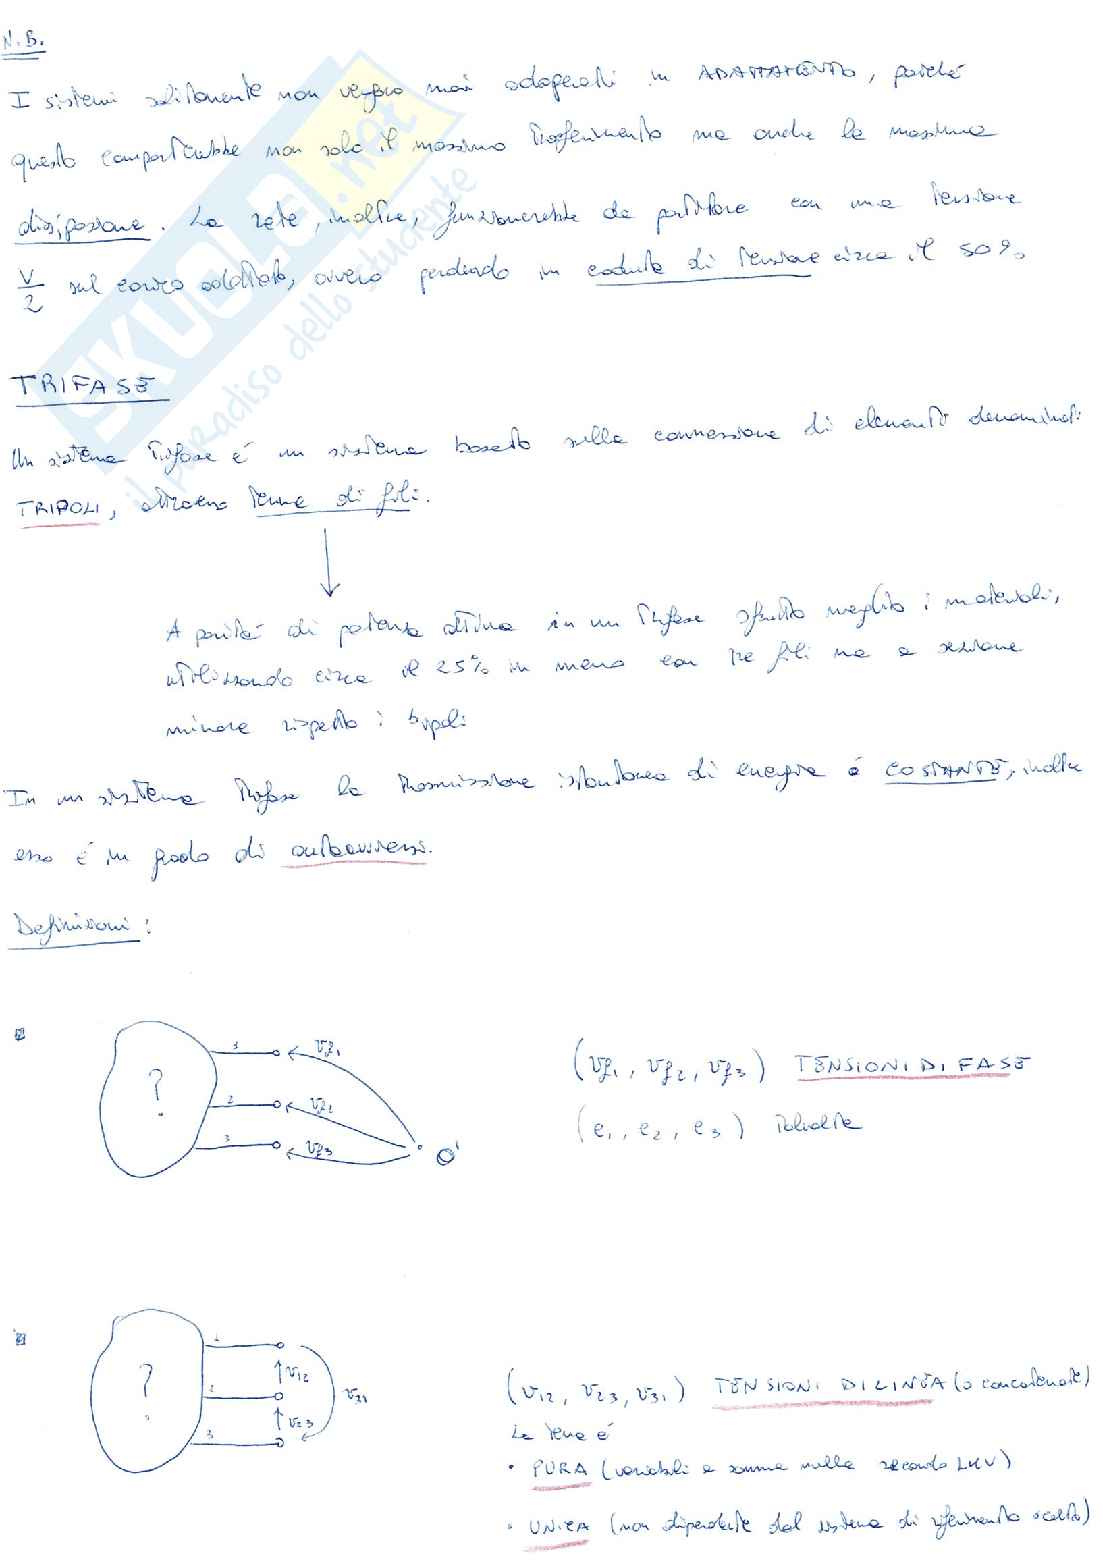 N.B.
I sistemi solitamente non vengono mai adoperati in ADATTAMENTO, poiché
questo comporterebbe non solo il massimo trasferimento ma anche la massima
dissipazione. La rete, inoltre, funzionerebbe da partitore con una tensione
V/2 sul carico adattato, ovvero perdendo in caduta di tensione circa il 50%
SKUOLA.net
il paradiso dello studente
TRIFASE
Un sistema trifase è un sistema basato sulla connessione di elementi denominati
TRIPOLI, attraverso terne di fili.
A parità di potenza attiva in un trifase sfrutto meglio i materiali,
utilizzando circa il 25% in meno con tre fili ma a sezione
minore rispetto i bipoli
In un sistema trifase la trasmissione istantanea di energia è COSTANTE, inoltre
esso è in grado di autoavviarsi.
Definizioni:
? 3 vf1
2 vf2
3 vf3 O'
(vf1, vf2, vf3) TENSIONI DI FASE
(e1, e2, e3)
? 1
v12
2 v31
v23
3
(v12, v23, v31) TENSIONI DI LINEA (o concatenate)
La terna è
• PURA (variabili a somma nulla secondo LKV)
• UNICA (non dipendente dal sistema di riferimento scelto)